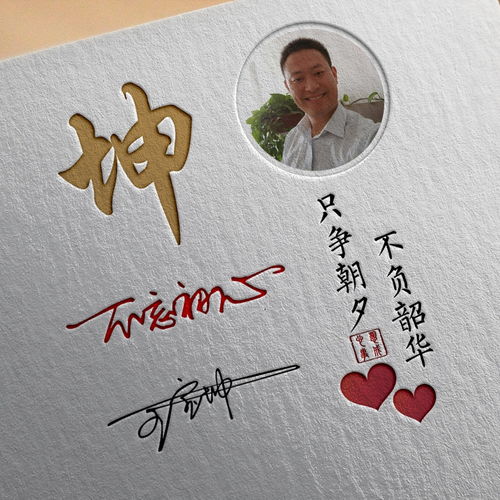 坤
不忘初心
只争朝夕
不负韶华